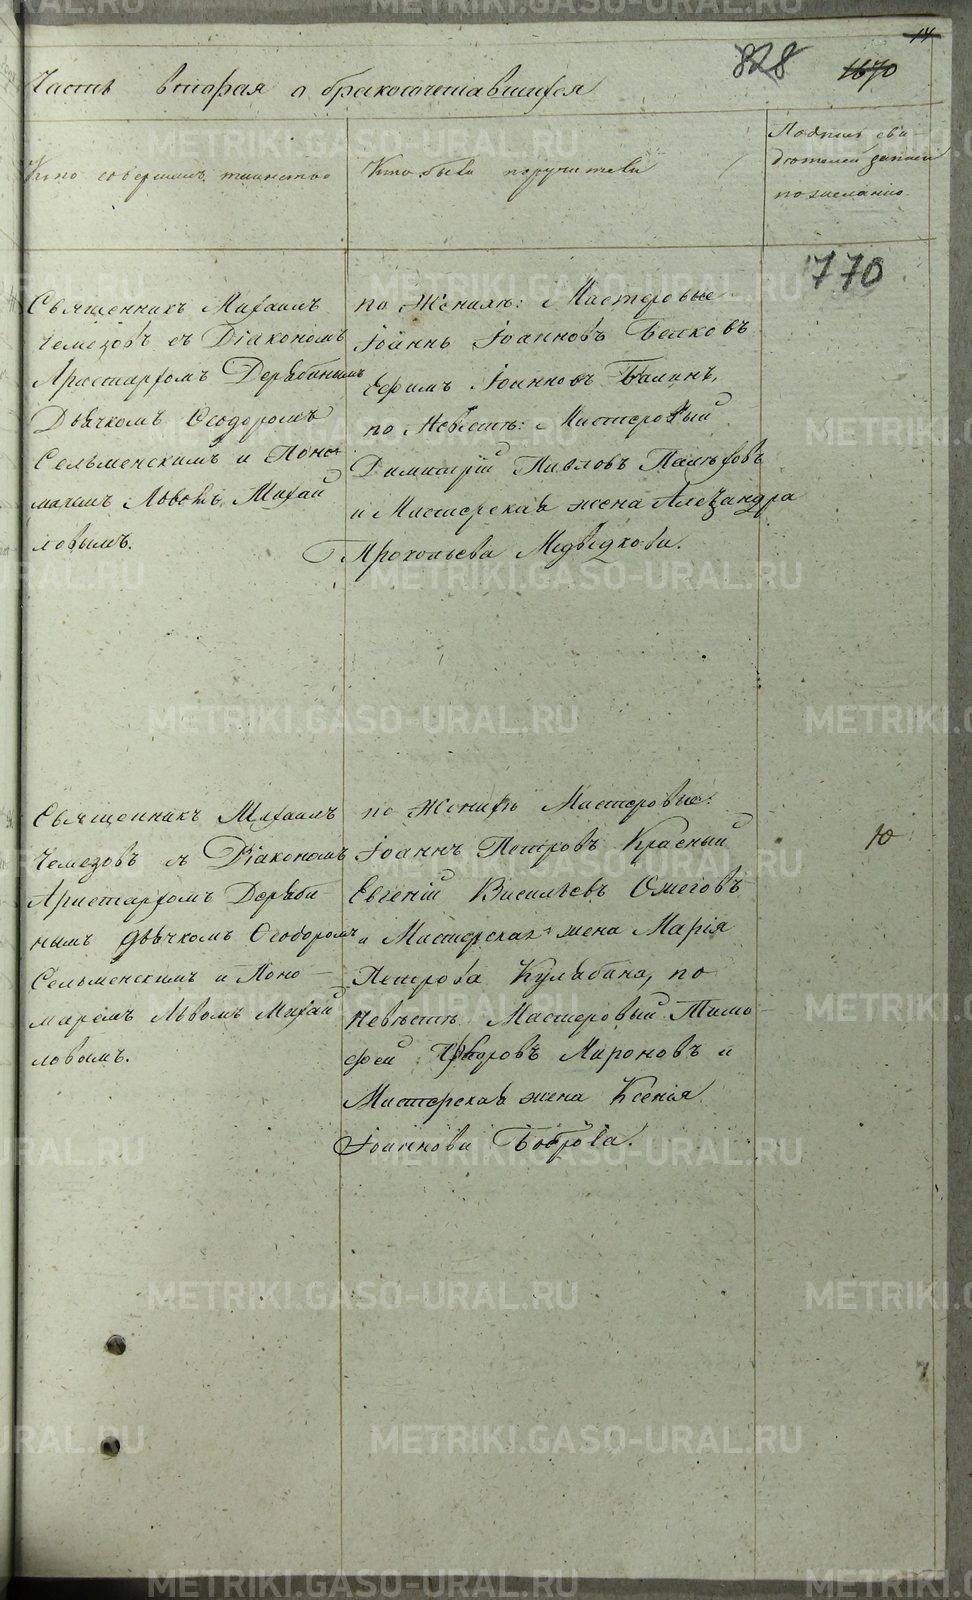 14
828 1670
Часть вторая о бракосочетавшихся
Кто совершалъ таинство
Кто были поручители
Подпись сви-
детелей записи
по желанію.
770
Священникъ Михаилъ
Чемезовъ съ Діакономъ
Аристархомъ Дерябинымъ
Дьячкомъ Ѳеодоромъ
Сельменскимъ и Поно-
маремъ Львомъ Михай
ловымъ.
по Женихѣ: Мастеровые
Іоаннъ Іоанновъ Белковъ
Ефимъ Іоанновъ Балинъ,
по Невѣстѣ: Мастеровый
Димитрій Павловъ Палѣховъ
и Мастерская жена Александра
Прокопьева Медвѣдкова.
Священникъ Михаилъ
Чемезовъ съ Діакономъ
Аристархомъ Деряби
нымъ Дьячкомъ Ѳеодоромъ
Сельменскимъ и Поно-
маремъ Львомъ Михай
ловымъ.
по Женихѣ Мастеровые:
Іоаннъ Петровъ Красный
Евгеній Васильевъ Ожеговъ
и Мастерская жена Марія
Петрова Кулябина, по
Невѣстѣ Мастеровый Тимо-
фей Мироновъ и
Мастерская жена Ксенія
Іоаннова Боброва.
Ю
METRIKI.GASO-URAL.RU